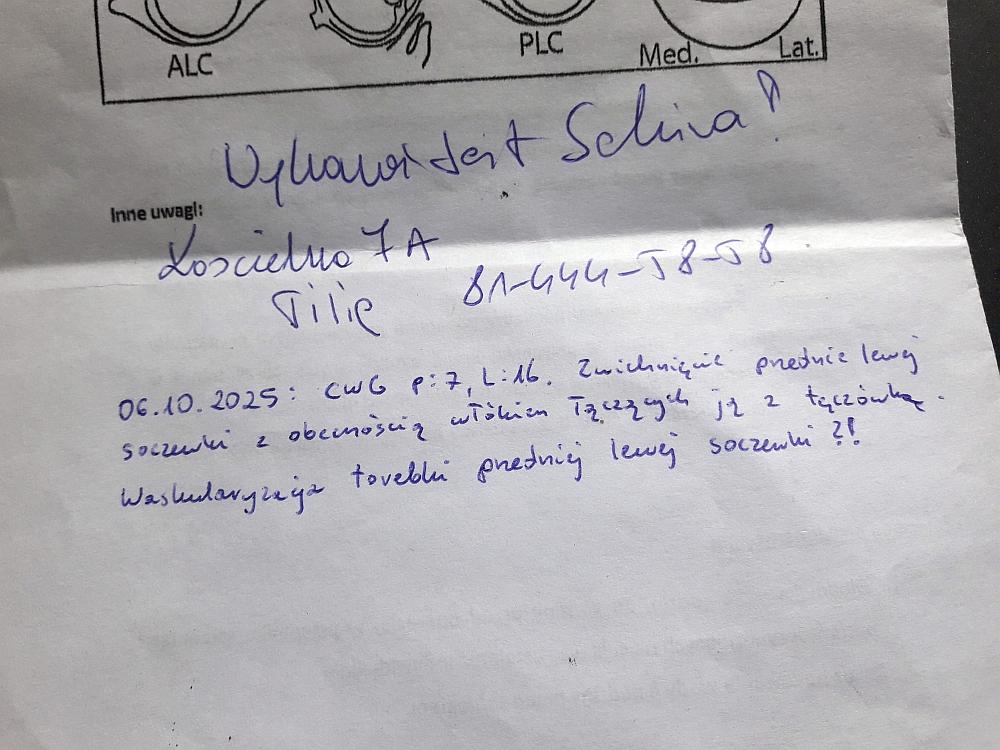 ALC PLC Med. Lat.
Wykonać test Schirmera!
Inne uwagi:
Kościelna 7A
Filip 81-444-58-58
06.10.2025: CWG P:7, L:16. Zwichnięcie przednie lewej
soczewki z obecnością włókien łączących ją z tęczówką.
Waskularyzacja torebki przedniej lewej soczewki?!